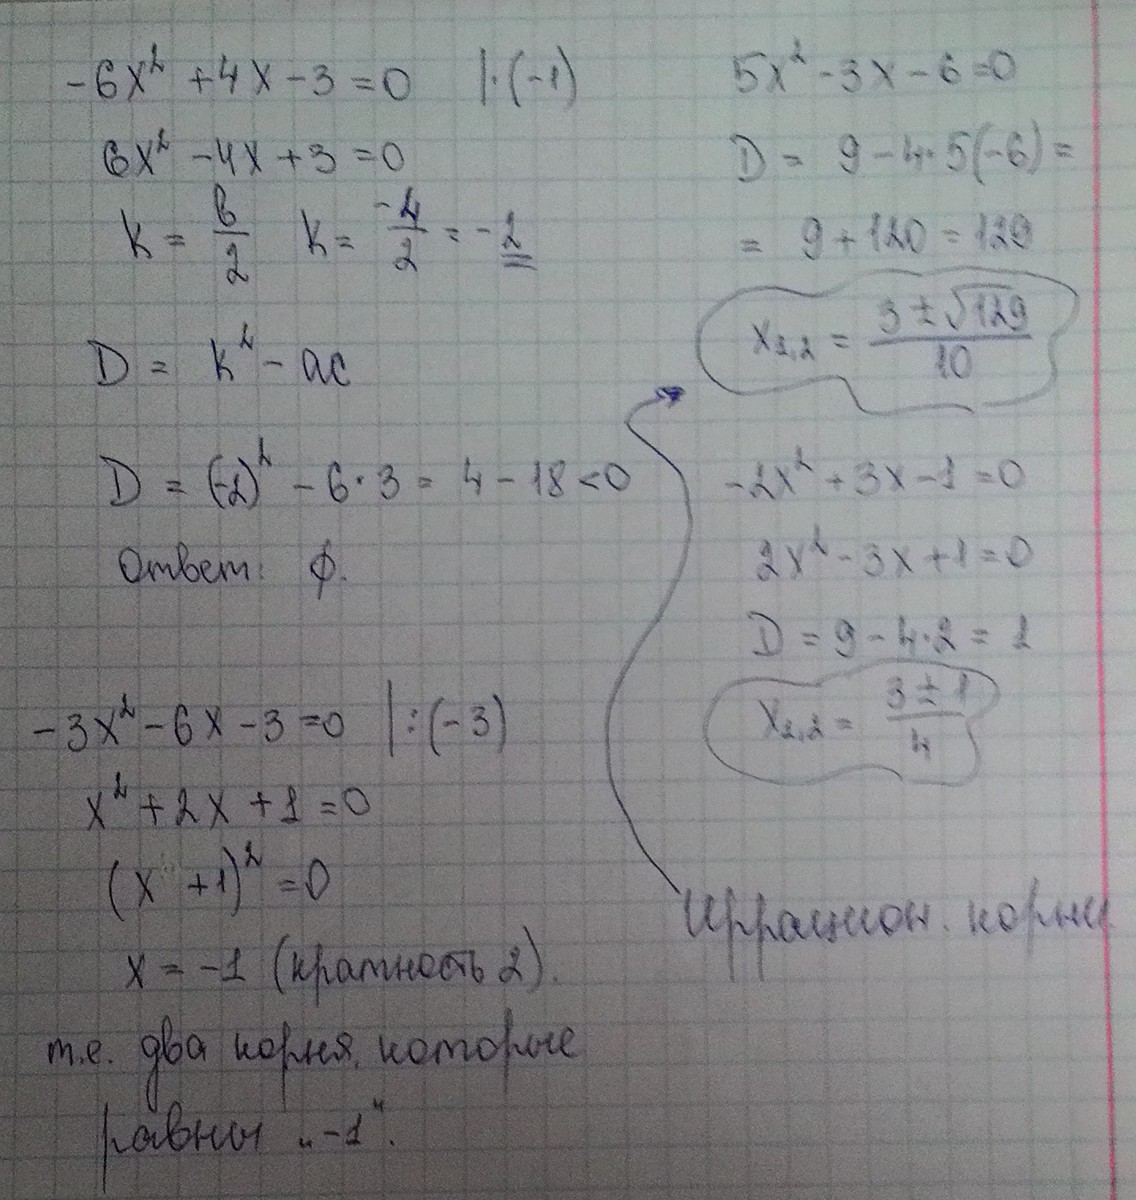 -6x² + 4x - 3 = 0 |·(-1)
6x² - 4x + 3 = 0
k = b/2 k = -4/2 = -2
D = k² - ac
D = (-2)² - 6·3 = 4 - 18 < 0
Ответ: ∅.
-3x² - 6x - 3 = 0 |:(-3)
x² + 2x + 1 = 0
(x + 1)² = 0
x = -1 (кратность 2).
т.е. два корня, которые
равны „-1".
5x² - 3x - 6 = 0
D = 9 - 4·5(-6) =
= 9 + 120 = 129
x₁,₂ = (3 ± √129)/10
-2x² + 3x - 1 = 0
2x² - 3x + 1 = 0
D = 9 - 4·2 = 1
x₁,₂ = (3 ± 1)/4
Иррацион. корни